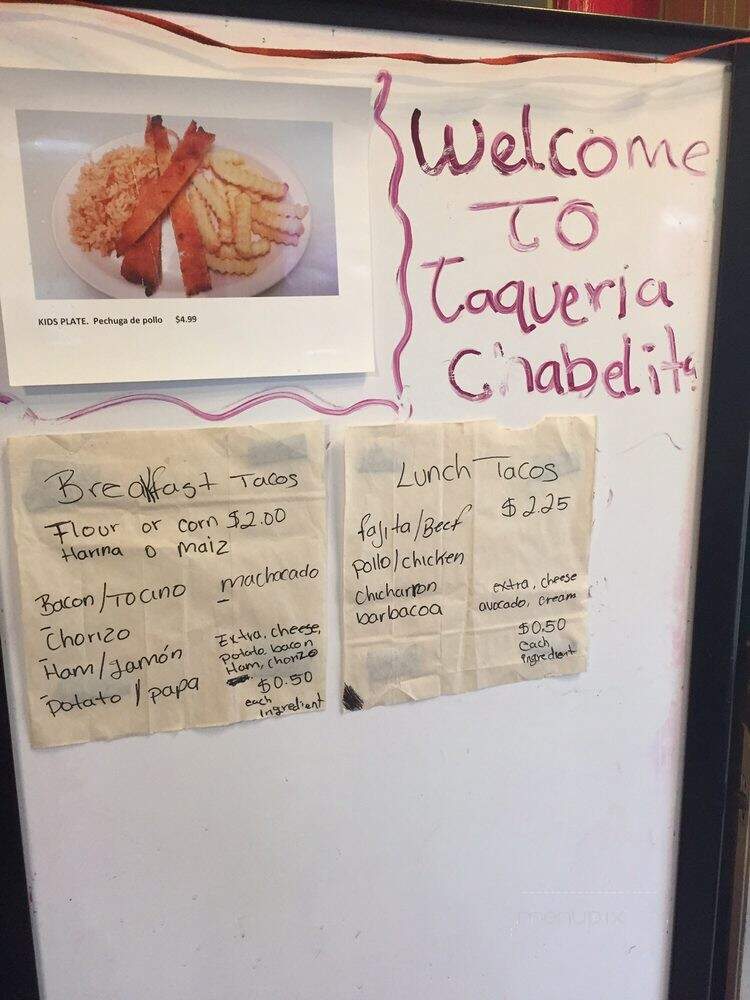 Welcome
TO
Taqueria
Chabelita
KIDS PLATE. Pechuga de pollo $4.99
Breakfast Tacos
Flour or corn $2.00
Harina o maiz
Bacon/Tocino
machacado
Chorizo
Ham/Jamón
Potato/papa
Extra, cheese,
potato, bacon
Ham, chorizo
$0.50
each
ingredient
Lunch Tacos
$2.25
fajita/Beef
pollo/chicken
Chicharron
barbacoa
extra, cheese
avocado, cream
$0.50
each
ingredient
menupix